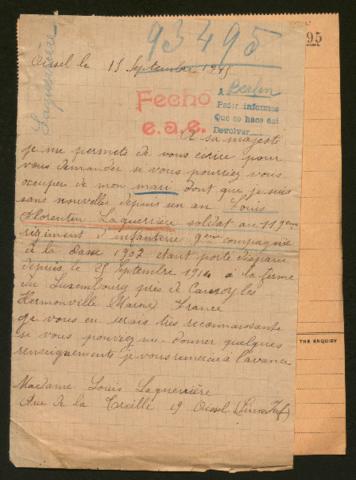 93495
95
Laquerrière
Oissel le 15 Septembre 1915
Fecho
e.a.e.
A Berlin
Pedir informes
Que se hace aqui
Devolver
A sa majesté
je me permets de vous écrire pour
vous demander si vous pourriez vous
occuper de mon mari dont que je suis
sans nouvelles depuis un an Louis
Florentin Laquerrière soldat au 119ème
régiment d'infanterie 9ème compagnie
de la classe 1902 étant porté disparu
depuis le 25 Septembre 1914 à la ferme
du Luxembourg près de Cauroy les
Hermonville Marne France
je vous en serais très reconnaissante
si vous pouvez me donner quelques
renseignements je vous remercie à l'avance
Madame Louis Laquerrière
Rue de la Treille 19 Oissel (Seine Inf)
THE ENQUIRY